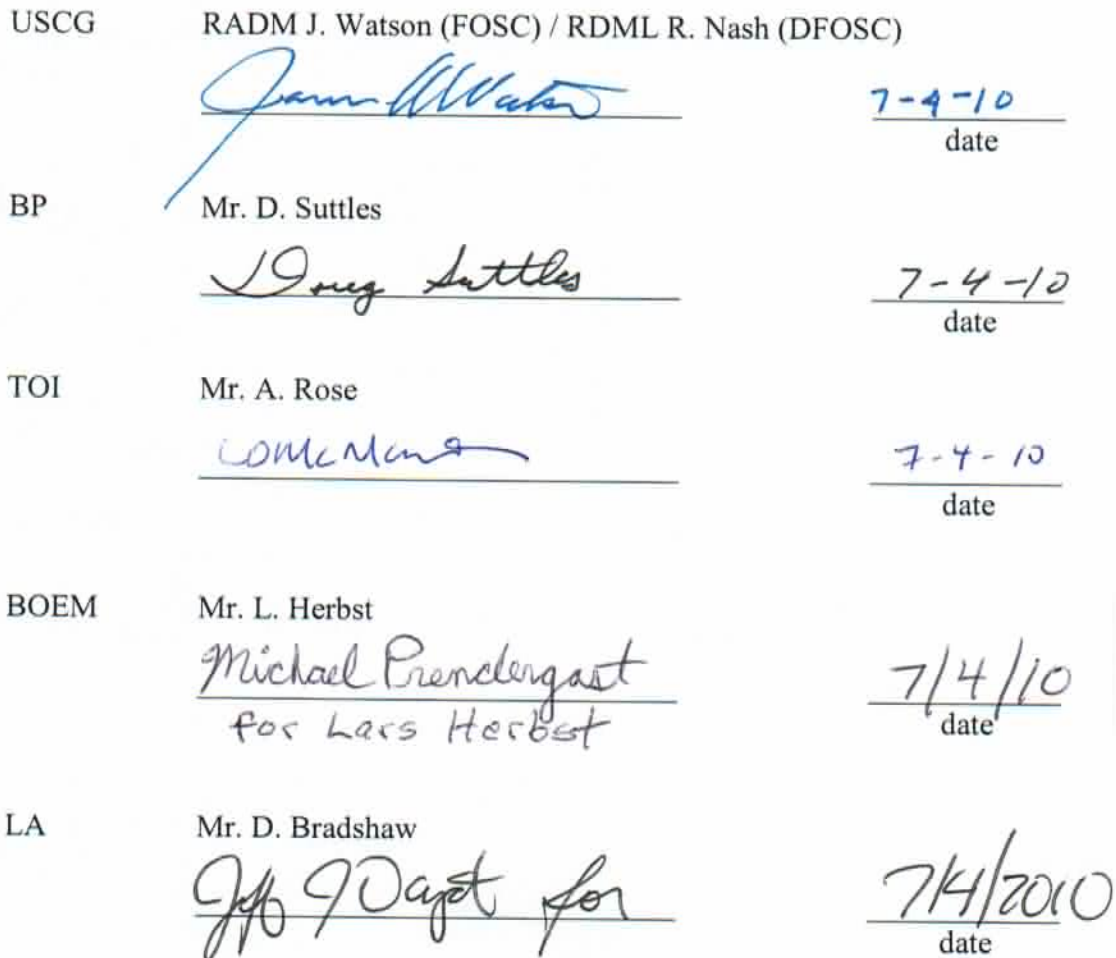 USCG RADM J. Watson (FOSC) / RDML R. Nash (DFOSC)
7-4-10
date
BP Mr. D. Suttles
Doug Suttles 7-4-10
date
TOI Mr. A. Rose
7-4-10
date
BOEM Mr. L. Herbst
Michael Prendergast 7/4/10
for Lars Herbst date
LA Mr. D. Bradshaw
for 7/4/2010
date